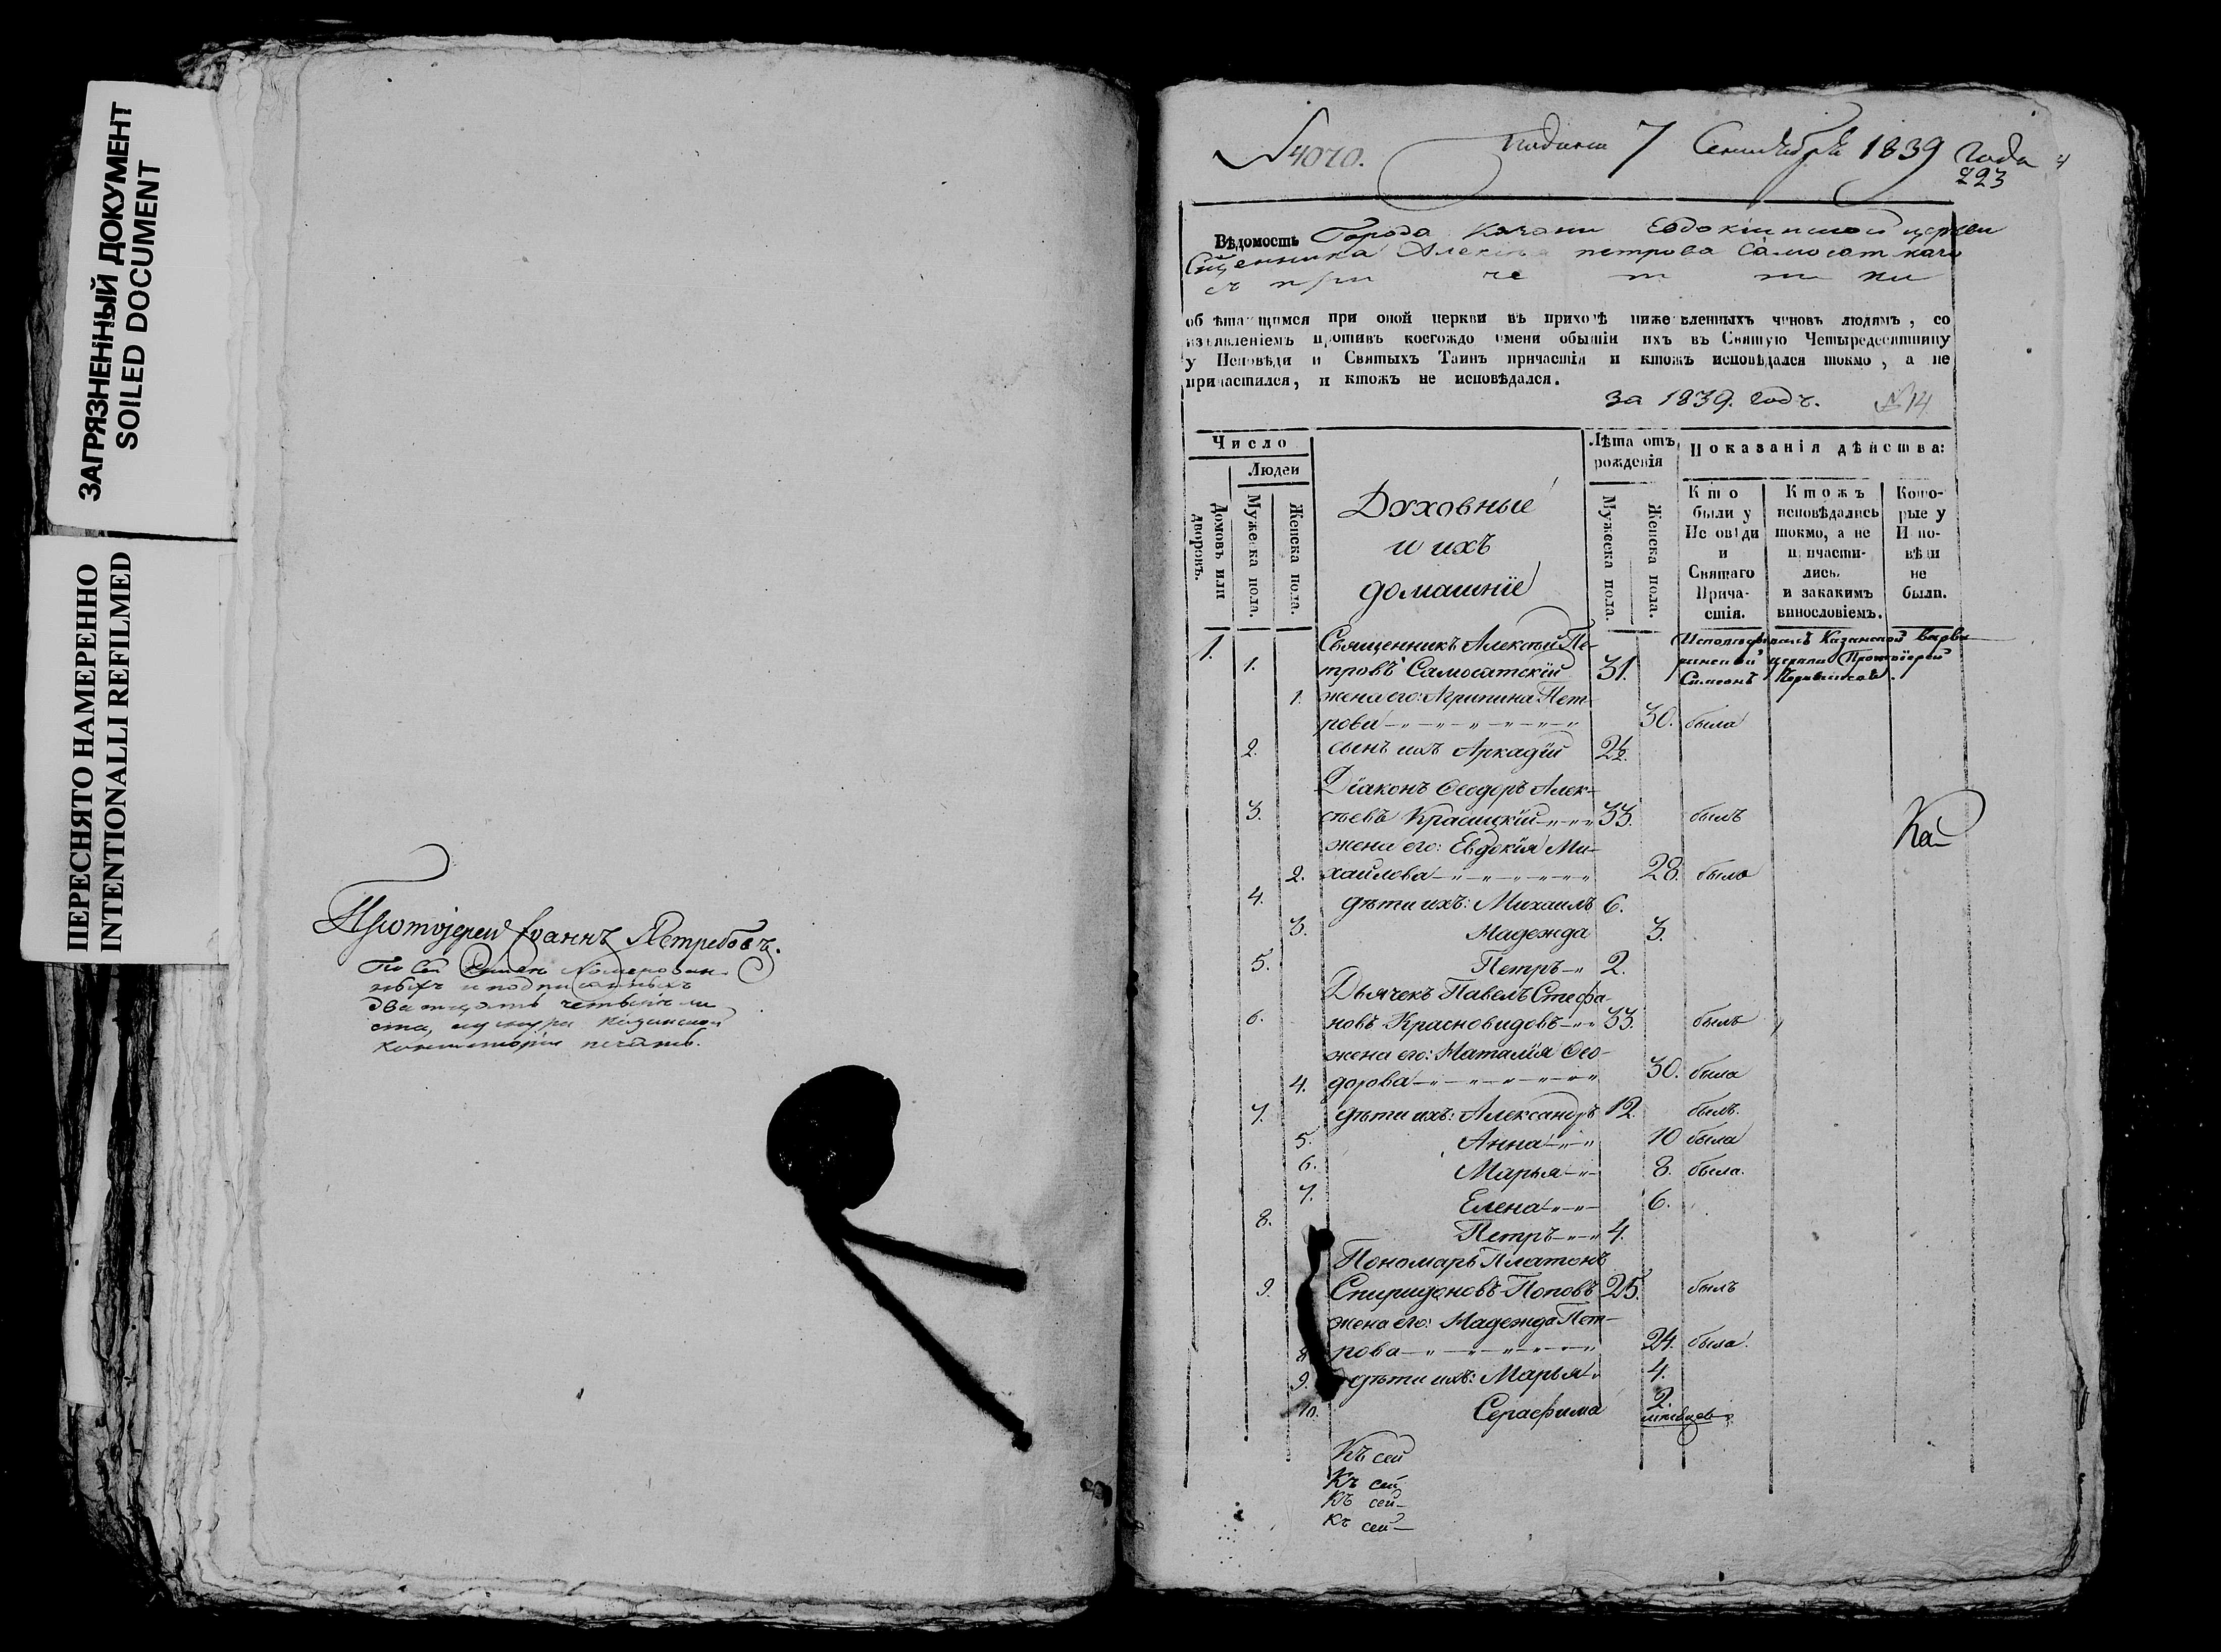 ЗАГРЯЗНЕННЫЙ ДОКУМЕНТ
SOILED DOCUMENT
ПЕРЕСНЯТО НАМЕРЕННО
INTENTIONALLI REFILMED
Протоіерей Іоаннъ Ястребовъ.
По сей
двадцать четыре ли
ста,
консисторіи печать.
4010.
7 Сентября 1839 года
4
223
Вѣдомость Города Казани Евдокіинской церкви
Священника Алексѣя петрова Самосатскаго
съ при че т т ни
об ѣта щимся при оной церкви въ приходѣ ниже вленныхъ чиновъ людямъ, со
изъявленіемъ противъ коегождо имени обытіи ихъ въ Святую Четыредесятницу
у Исповѣди и Святыхъ Таинъ причастія и ктожъ исповѣдался токмо, а не
причастился, и ктожъ не исповѣдался.
за 1839. годъ. №14
Число
Людей
Домовъ или дворовъ.
Мужеска пола.
Женска пола.
Духовные
и ихъ
домашніе
Лѣта отъ рожденія
Мужеска пола.
Женска пола.
Показанія дѣйства:
Кто были у Исповѣди и Святаго Причастія.
Ктожъ исповѣдались токмо, а не причастились. и закакимъ винословіемъ.
Которые у Исповѣди не были.
1. Священникъ Алексѣй Пе-
1. тровъ Самосатскій 31.
Казанской Варва
ринской церкви Протоіерей
Симеонъ
1. жена его: Агрипина Пет-
рова 30. была
2. сынъ ихъ Аркадій
Діаконъ Ѳеодоръ Алек-
3. сѣевъ Красицкій 33. былъ
жена его: Евдокія Ми-
2. хаилова 28. была
4. дѣти ихъ: Михаилъ 6.
3. Надежда 3.
5. Петръ 2.
Дьячекъ Павелъ Стефа-
6. новъ Красновидовъ 33. былъ
жена его: Наталія Ѳео-
4. дорова 30. была
7. дѣти ихъ: Александръ 12. былъ.
5. Анна 10 была
6. Марья 8. была.
7. Елена 6.
8. Петръ 4.
Пономарь Платонъ
9. Спиридоновъ Поповъ 25. былъ
жена его: Надежда Пет-
8. рова 24. была.
9. дѣти ихъ: Марья 4.
10. Серафима 2.
Къ сей
Къ сей
Къ сей
Къ сей